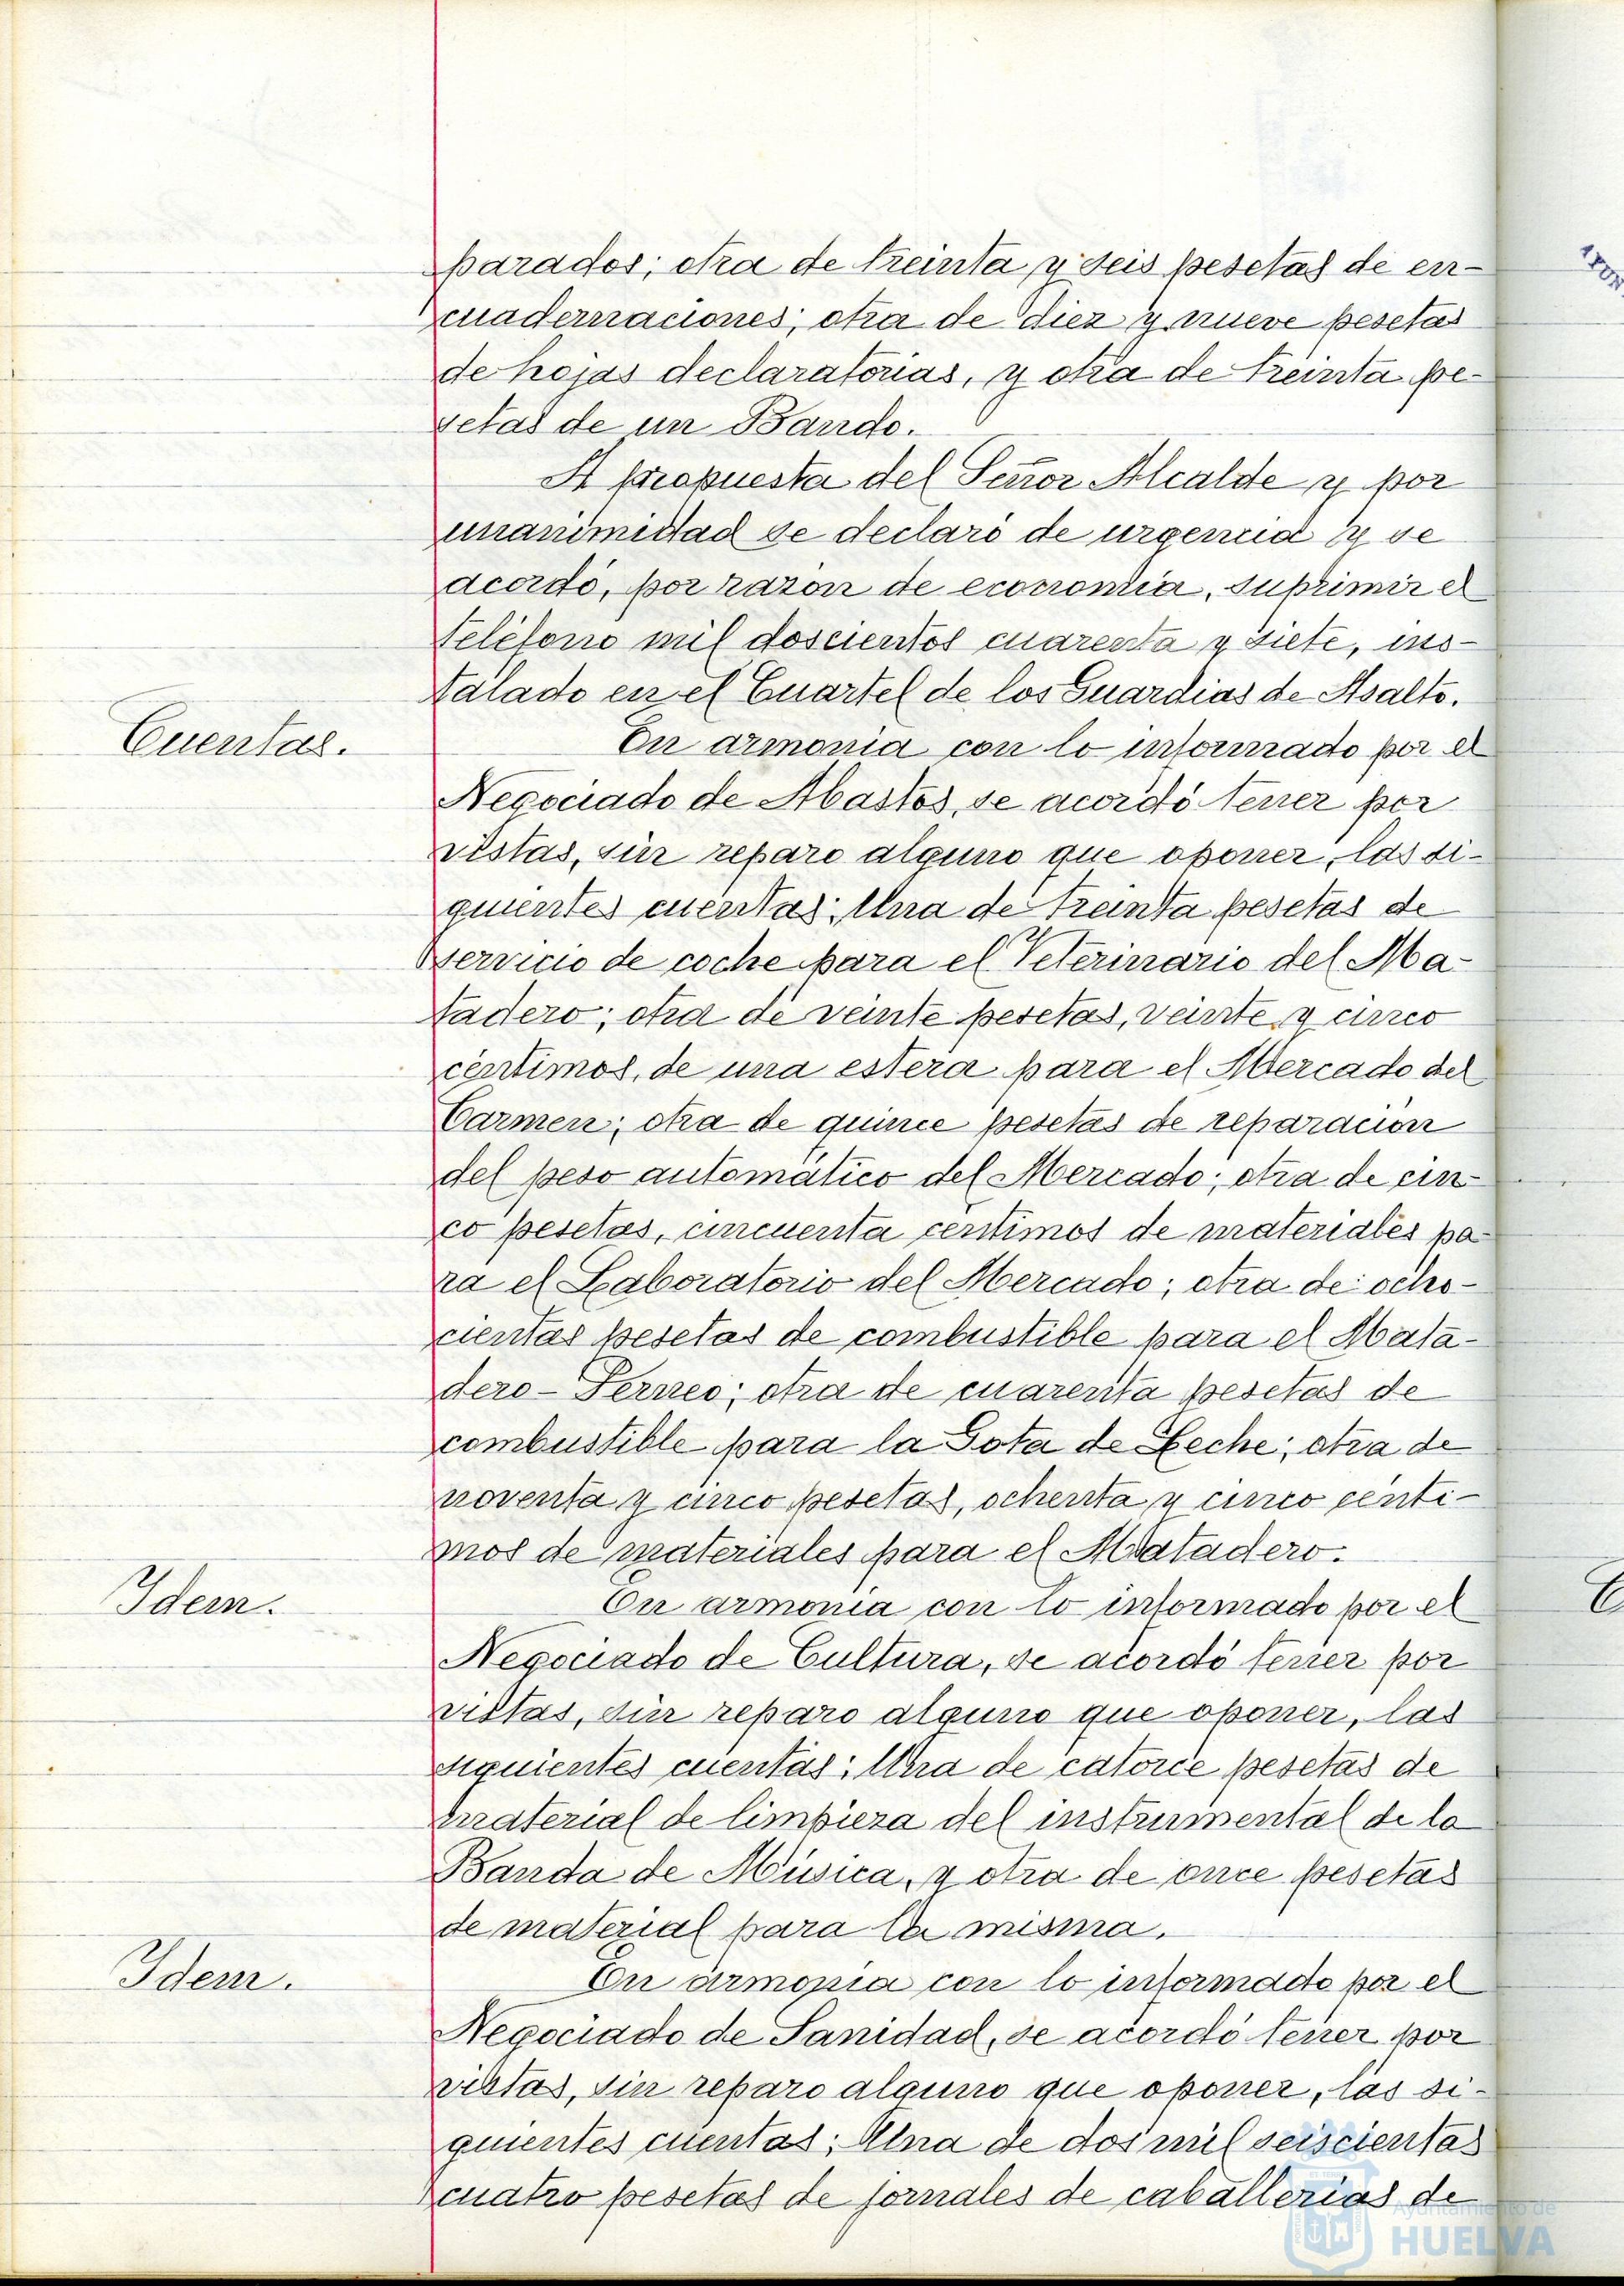 parados; otra de treinta y seis pesetas de en-
cuadernaciones; otra de diez y nueve pesetas
de hojas declaratorias, y otra de treinta pe-
setas de un Bando.
A propuesta del Señor Alcalde y por
unanimidad se declaró de urgencia y se
acordó, por razón de economia, suprimir el
teléfono mil doscientos cuarenta y siete, ins-
talado en el Cuartel de los Guardias de Asalto.
Cuentas.
En armonia con lo informado por el
Negociado de Abastos, se acordó tener por
vistas, sin reparo alguno que oponer, las si-
guientes cuentas: Una de treinta pesetas de
servicio de coche para el Veterinario del Ma-
tadero; otra de veinte pesetas, veinte y cinco
céntimos, de una estera para el Mercado del
Carmen; otra de quince pesetas de reparación
del peso automático del Mercado; otra de cin-
co pesetas, cincuenta centimos de materiales pa-
ra el Laboratorio del Mercado; otra de ocho-
cientas pesetas de combustible para el Mata-
dero-Perneo; otra de cuarenta pesetas de
combustible para la Gota de Leche; otra de
noventa y cinco pesetas, ochenta y cinco centi-
mos de materiales para el Matadero.
Idem.
En armonia con lo informado por el
Negociado de Cultura, se acordó tener por
vistas, sin reparo alguno que oponer, las
siguientes cuentas: Una de catorce pesetas de
material de limpieza del instrumental de la
Banda de Música, y otra de once pesetas
de material para la misma.
Idem.
En armonia con lo informado por el
Negociado de Sanidad, se acordó tener por
vistas, sin reparo alguno que oponer, las si-
guientes cuentas: Una de dos mil seiscientas
cuatro pesetas de jornales de caballerias de
Ayuntamiento de
HUELVA